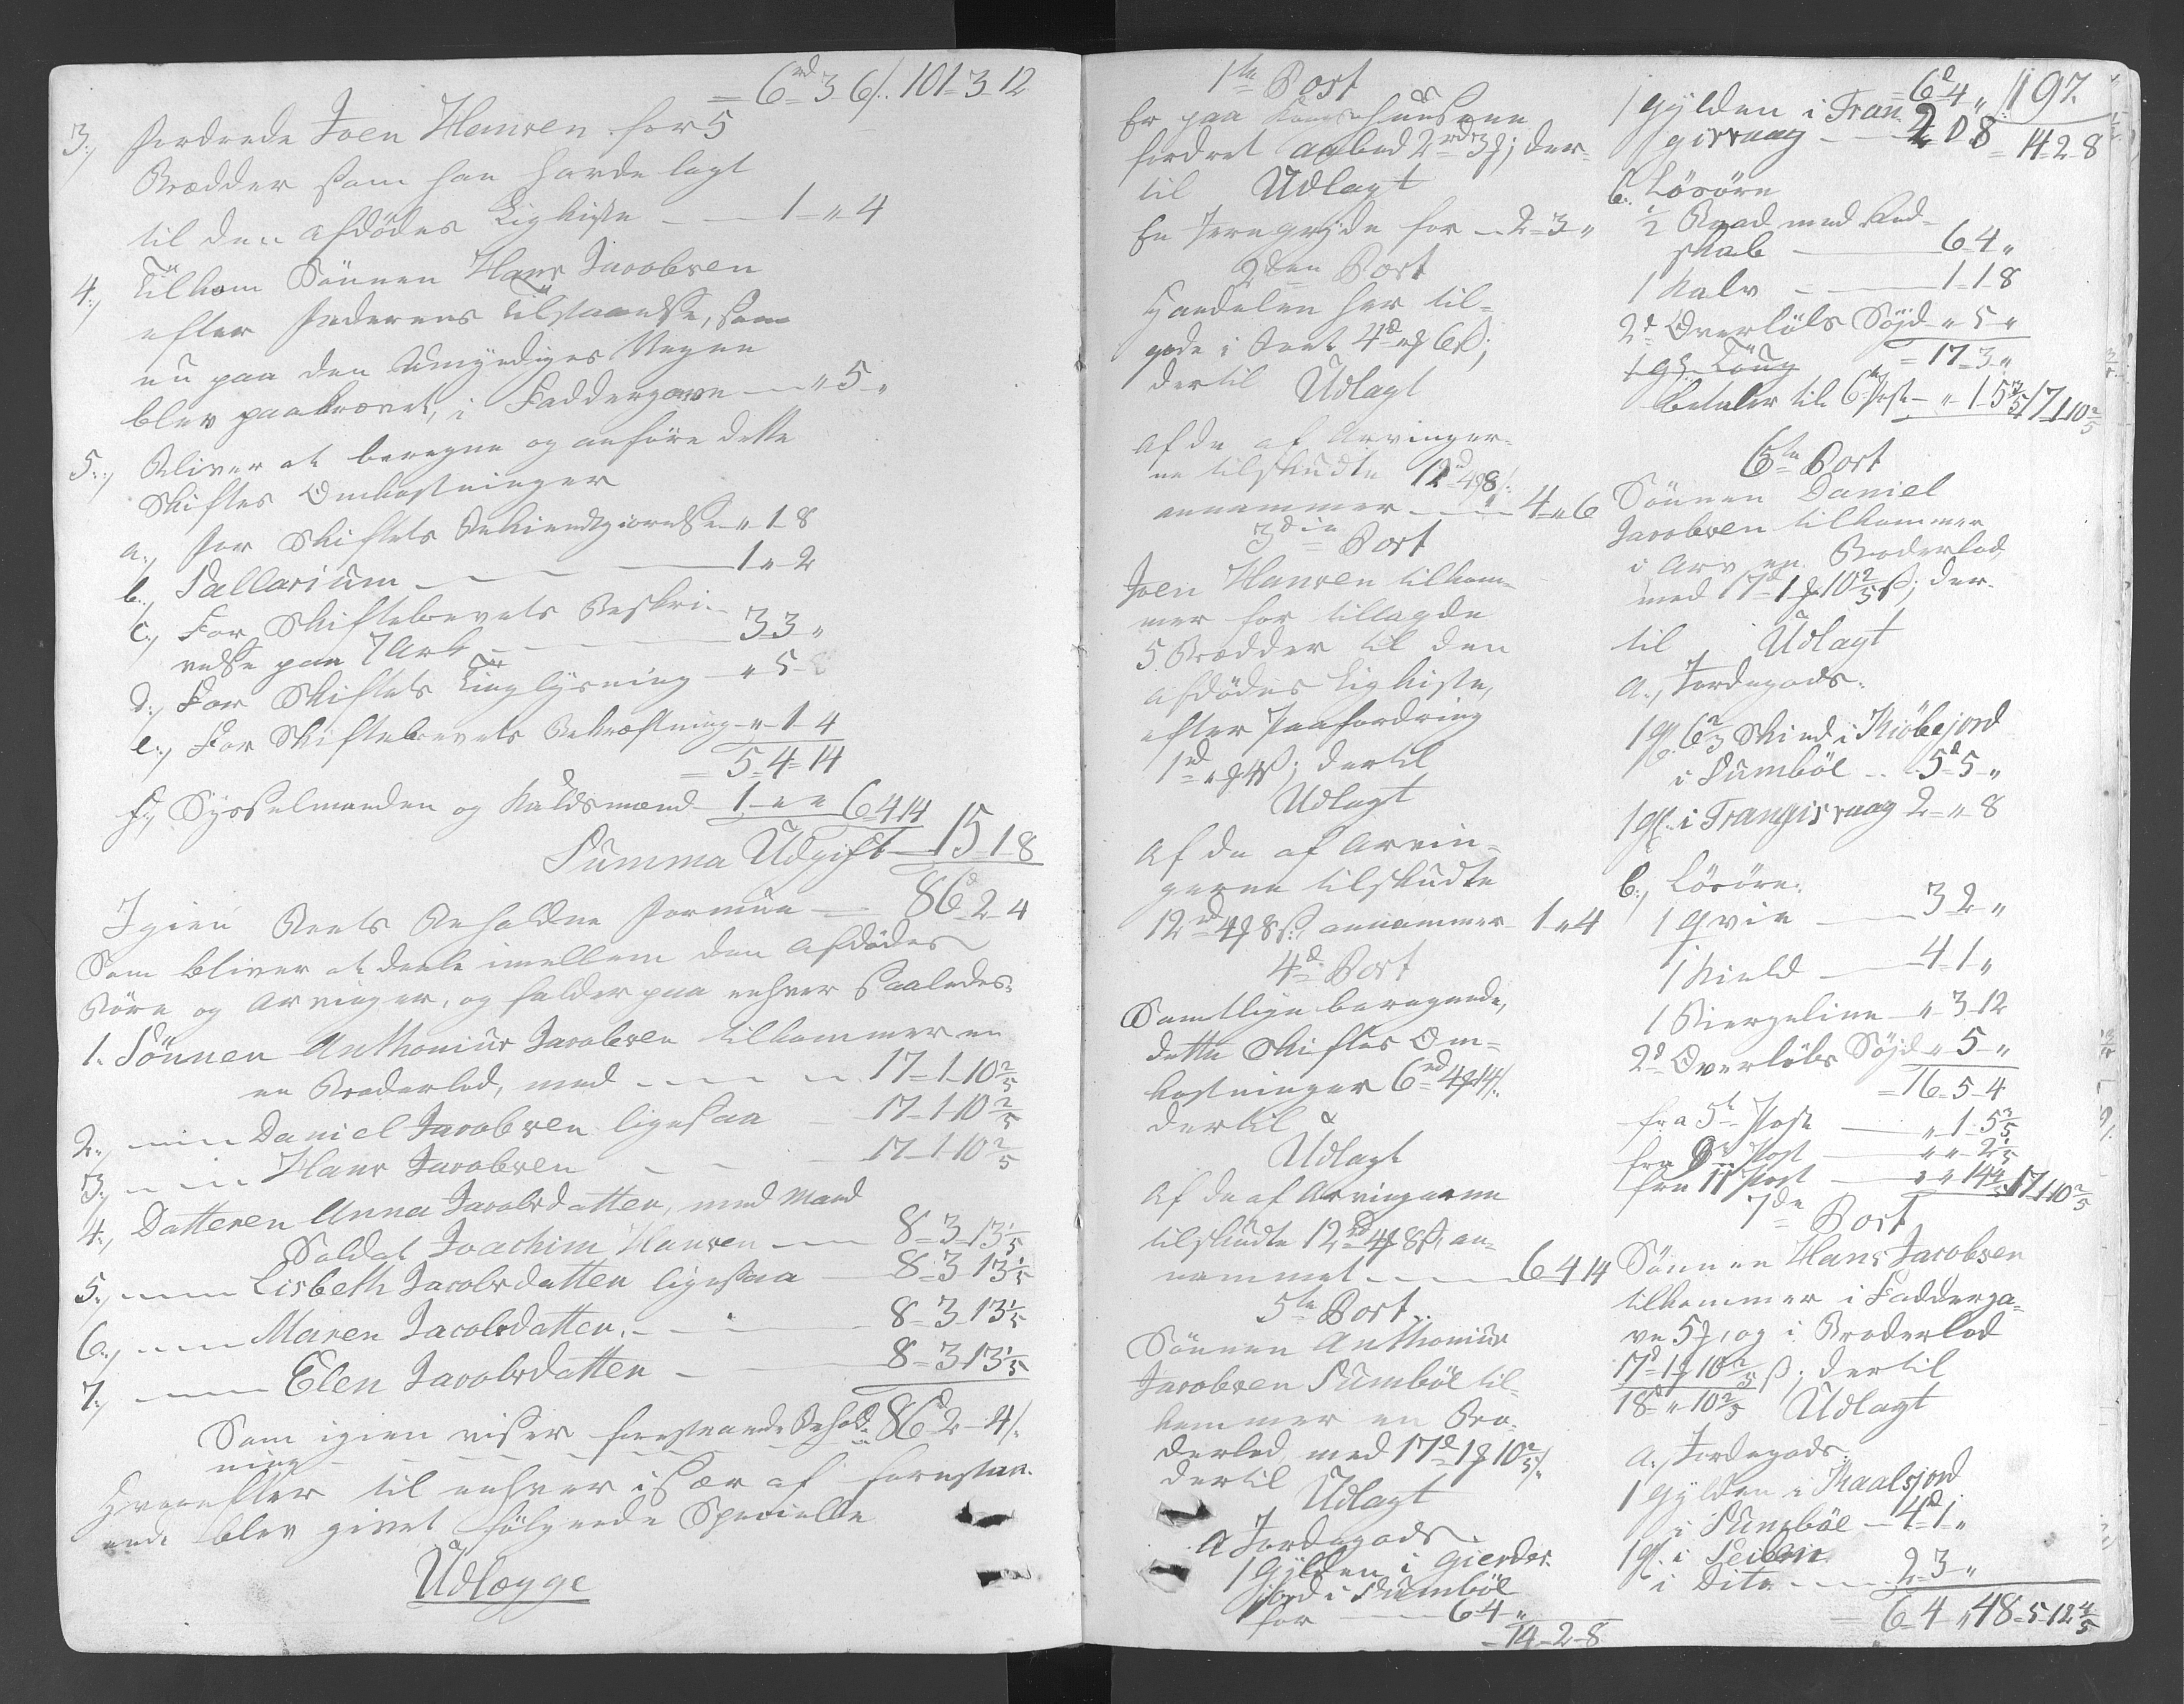 = 6rd 3 6ß. 101 - 3 - 12
3., fordrede Joen Hansen for 5
Brædder som han havde lagt
til den afdødes Ligkiste — 1 - „ 4
4., Tilkom Sönnen Hans Jacobsen
efter Faderens tilstaaelse, som
nu paa den Umyndiges Vegne
blev paakrævet, i Faddergave — „ 5 „
5., Bliver at beregne og anføre dette
Skiftes Omkostninger
a., for Skiftets Bekiendtgiörelse „ 1 8
b., Sallarium — 1 „ 2
c., For Skiftebrevets Beskri-
velse paa 7 Ark — 3 3 „
d., For Skiftets Tinglysning — „ 5 8
e., For Skiftebrevets Bekræftning „ 1 4
= 5 - 4 - 14
f., Sysselmanden og Kaldsmænd 1 „ „ 6 4 14
Summa Udgift — 15 1 8
Igien Boets Beholdne Formue — 86d 2 4
Som bliver at deele imellem den afdödes
Börn og Arvinger, og falder paa enhver saaledes:
1. Sönnen Anthonius Jacobsen tilkommer en
en Broderlod, med — 17 - 1 - 10 2/5
2., — Daniel Jacobsen ligesaa — 17 - 1 - 10 2/5
3., — Hans Jacobsen — 17 - 1 - 10 2/5
4., Datteren Anna Jacobsdatter, med Mand
Soldat Joachim Hansen — 8 - 3 - 13 1/5
5., — Lisbeth Jacobsdatter ligesaa 8 - 3 - 13 1/5
6., — Maren Jacobsdatter. — 8 - 3 - 13 1/5
7., — Elen Jacobsdatter — 8 - 3 - 13 1/5
Som igien viser forestaaende Behold- 86d 2 - 4ß.
ning
Hvorefter til enhver især af forestaa-
ende blev givet følgende Specielle
Udlægge
1te Post
fordret anbod 2rd 3 ; der-
til Udlagt
En Jerngryde for — 2 - 3 „
2den Post
Handelen her til-
gode i Boet 4d „ 6ß;
dertil Udlagt
Af de af Arvinger-
ne tilskudte 12rd 4 8ß.
annammer — 4 „ 6
3die Post
Joen Hansen tilkom-
mer for tillagde
5 Brædder til den
afdødes Ligkiste,
efter Paafordring
1rd „ 4ß; dertil
Udlagt
Af de af Arvin-
gerne tilskudte
12rd 4 8ß. annammer 1 „ 4
4d Post
Samtlige beregnede,
dette Skiftes Om-
kostninger 6rd 4 14ß.
dertil
Udlagt
Af de af Arvingerne
tilskudte 12rd 4 8ß, an-
nammet — 6 4 14
5te Post
Sönnen Anthonius
Jacobsen Sumböe til-
kommer en Bro-
derlod med 17d 1 10 2/5ß.
dertil
Udlagt
a Jordegods.
1 Gylden i Gierdes
jord i Sumböe
for — 6 4 „
= 14 - 2 - 8
= 6d 4 „ 197.
1 Gylden i Fran-
gisvaag — 2 „ 8 = 14 - 2 - 8
b. Lösöre
1/2 Baad med Red-
skab — 6 4 „
1 Kalv — 1 - 1 8
2d Overløbs Søjd „ 5 „
= 17 - 3 „
betaler til 6te Post „ 1 5 3/5 17 1 10 2/5
6te Post
Sönnen Daniel
Jacobsen tilkommer
i Arv en Broderlod
med 17d 1 10 2/5ß; der-
til Udlagt
a., Jordegods.
1 gl. 6 2/3 Skind i Kiöbejord
i Sumböe .. 5d 5 „
1 gl. i Frangisvaag 2 „ 8
b., Lösöre.
1 Qvie — 3 2 „
1 Kield — 4 - 1 „
1 Biergeline „ 3 - 12
2d Overløbs Søjd „ 5 „
= 16 - 5 4
fra 5te Post — „ 1 5 3/5
fra 9de Post — „ „ 2 1/5
fra 11 Post — „ „ 14 4/5 17 1 10 2/5
7de Post
Sönnen Hans Jacobsen
tilkommer i Fadderga-
ve 5, og i Broderlod
17d 1 10 2/5 ß; dertil
18d „ 10 2/5 Udlagt
a., Jordegods.
1 Gylden i Kaalsjord
i Sumböe — 4d 1 „
1 gl. i
i Dito — 2 3 „
= 6 4 „ 48 - 5 - 12 4/5